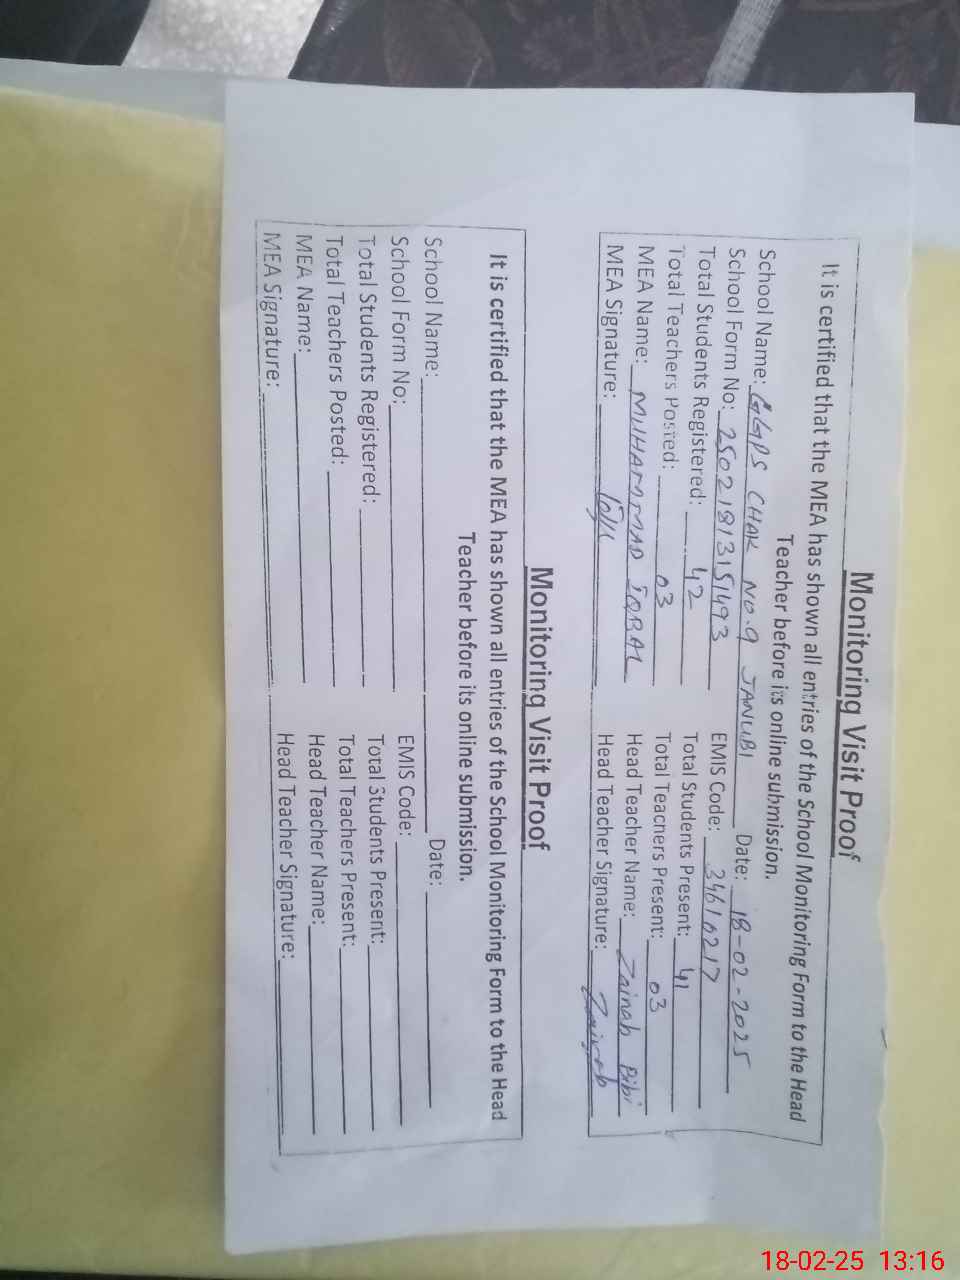 Monitoring Visit Proof
It is certified that the MEA has shown all entries of the School Monitoring Form to the Head
Teacher before its online submission.
School Name: GGPS CHAK NO.9 JANUBI Date: 18-02-2025
School Form No: 25021813151493 EMIS Code: 34610217
Total Students Registered: 42 Total Students Present: 41
Total Teachers Posted: 03 Total Teachers Present: 03
MEA Name: MUHAMMAD IQBAL Head Teacher Name: Zainab Bibi
MEA Signature: Head Teacher Signature: Zainab
Monitoring Visit Proof
It is certified that the MEA has shown all entries of the School Monitoring Form to the Head
Teacher before its online submission.
School Name: Date:
School Form No: EMIS Code:
Total Students Registered: Total Students Present:
Total Teachers Posted: Total Teachers Present:
MEA Name: Head Teacher Name:
MEA Signature: Head Teacher Signature:
18-02-25 13:16